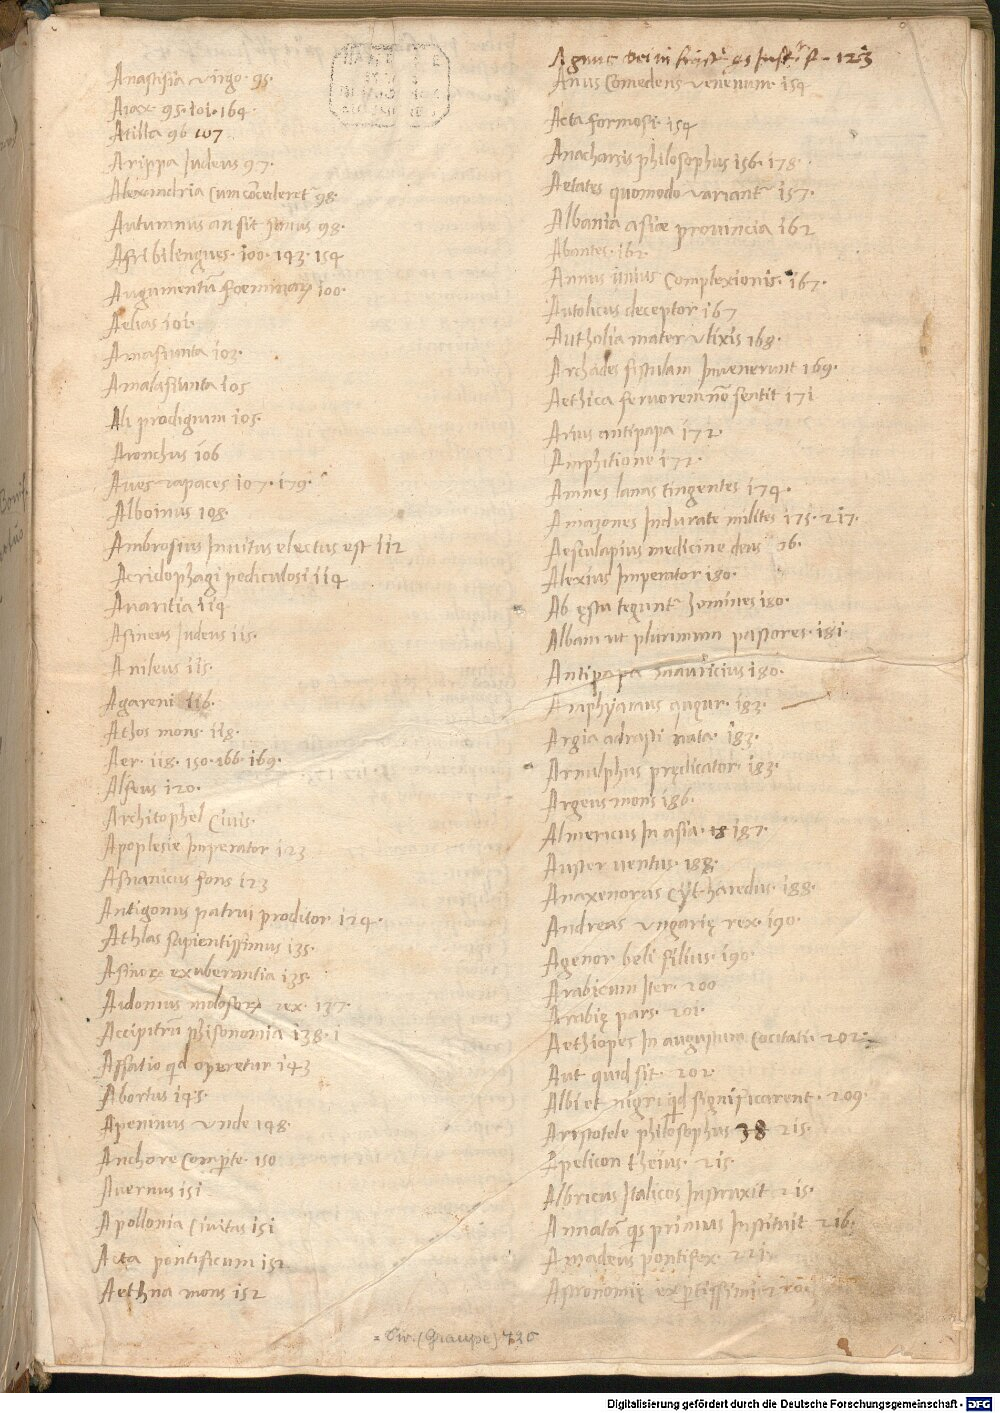 Anastasia virgo · 95 ·
Aiax · 95 · 101 · 164 ·
Atilla 96 107
Arippa Judeus 97 ·
Alexandria Cum 98 ·
Autumnus an sit 98 ·
Afri bilengues · 100 · 143 · 154
Augumentū 100 ·
Aelias 101 ·
Amasiunta 103 ·
Amalasiunta 105
Ali prodigium 105 ·
Aronchus 106
Aues rapaces 107 · 179 ·
Alboinus 108 ·
Ambrosius Inuitus electus est 112
Acridophagi pediculosi 114
Auaritia 114
Asineus Judeus 115 ·
Anileus 115 ·
Agareni 116 ·
Athos mons · 118 ·
Aer · 118 · 150 · 166 · 169 ·
120 ·
Architophel Ciuis ·
Imperator 123
fons 123
Antigonus patrui proditor · 124 ·
Athlas sapientissimus 135 ·
exuberantia 135 ·
rex · 137 ·
phisonomia 138 ·
qd operetur 143
Abortus 145 ·
Apeninus Vnde 148 ·
Anchore 150
Auernus 151
Apollonia Ciuitas 151
Acta pontificum 152
Aethna mons 152
Agnus Dei 123
Anus Comedens venenum · 154
Acta formosi · 154
Anacharsis philosophus 156 · 178 ·
Aetates quomodo variant 157 ·
Albania asiae prouincia 162
Abantes · 162 ·
Annus Complexionis · 167 ·
Autolicus deceptor 167
Autholia mater vlixis 168 ·
Archades fistulam Inuenerunt 169 ·
Aethica feruorem nō sentit 171
Arius antipapa 172 ·
Amphitione 172 ·
Amnes lanas tingentes 174 ·
Amazones milites 175 · 217 ·
Aesculapius medicine deus
Alexius Imperator 180 ·
Ab homines 180 ·
Albani ut plurimum pastores · 181
Antipapa Mauricius 180 ·
augur · 183 ·
Argia adrasti nata · 183 ·
Arnulphus prędicator · 183 ·
Argeus mons 186 ·
Almericus In asia · 187 ·
Auster uentus · 188 ·
Anaxenorus Cytharedus · 188 ·
Andreas vngarię rex · 190 ·
Agenor beli filius · 190 ·
Arabicum Iter · 200
Arabię pars · 201 ·
Aethiopes In 202 ·
Aut quid sit · 202 ·
Albi et nigri qd significarent · 209 ·
Aristotele philosophus 38 215 ·
Apelicon theius · 215 ·
Albricus Italicos Instruxit 215 ·
Annatā qs primus Instituit 216 ·
Amadeus pontifex ·
Astronomię
Digitalisierung gefördert durch die Deutsche Forschungsgemeinschaft - DFG